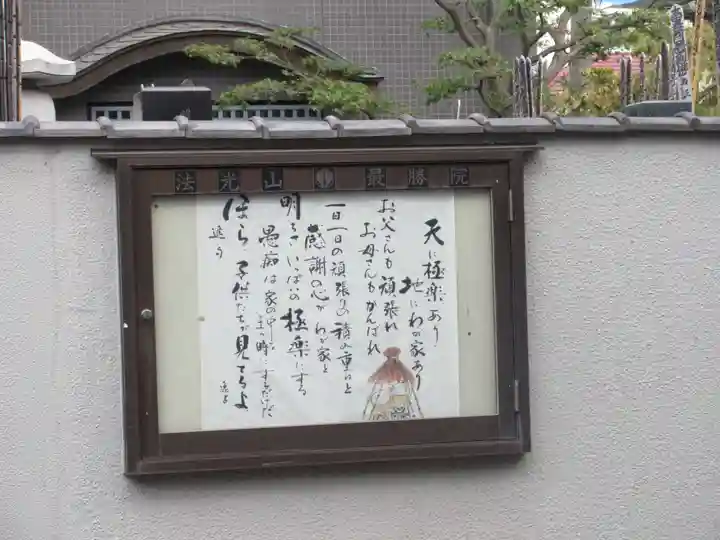 法光山 最勝院
天に極楽あり
地にわが家あり
お父さんも頑張れ
お母さんもがんばれ
一日一日の頑張りの積み重ねと
感謝の心がわが家を
明るさいっぱいの極楽にする
愚痴は家の中を
暗くするだけだ
ほら子供たちが見てるよ